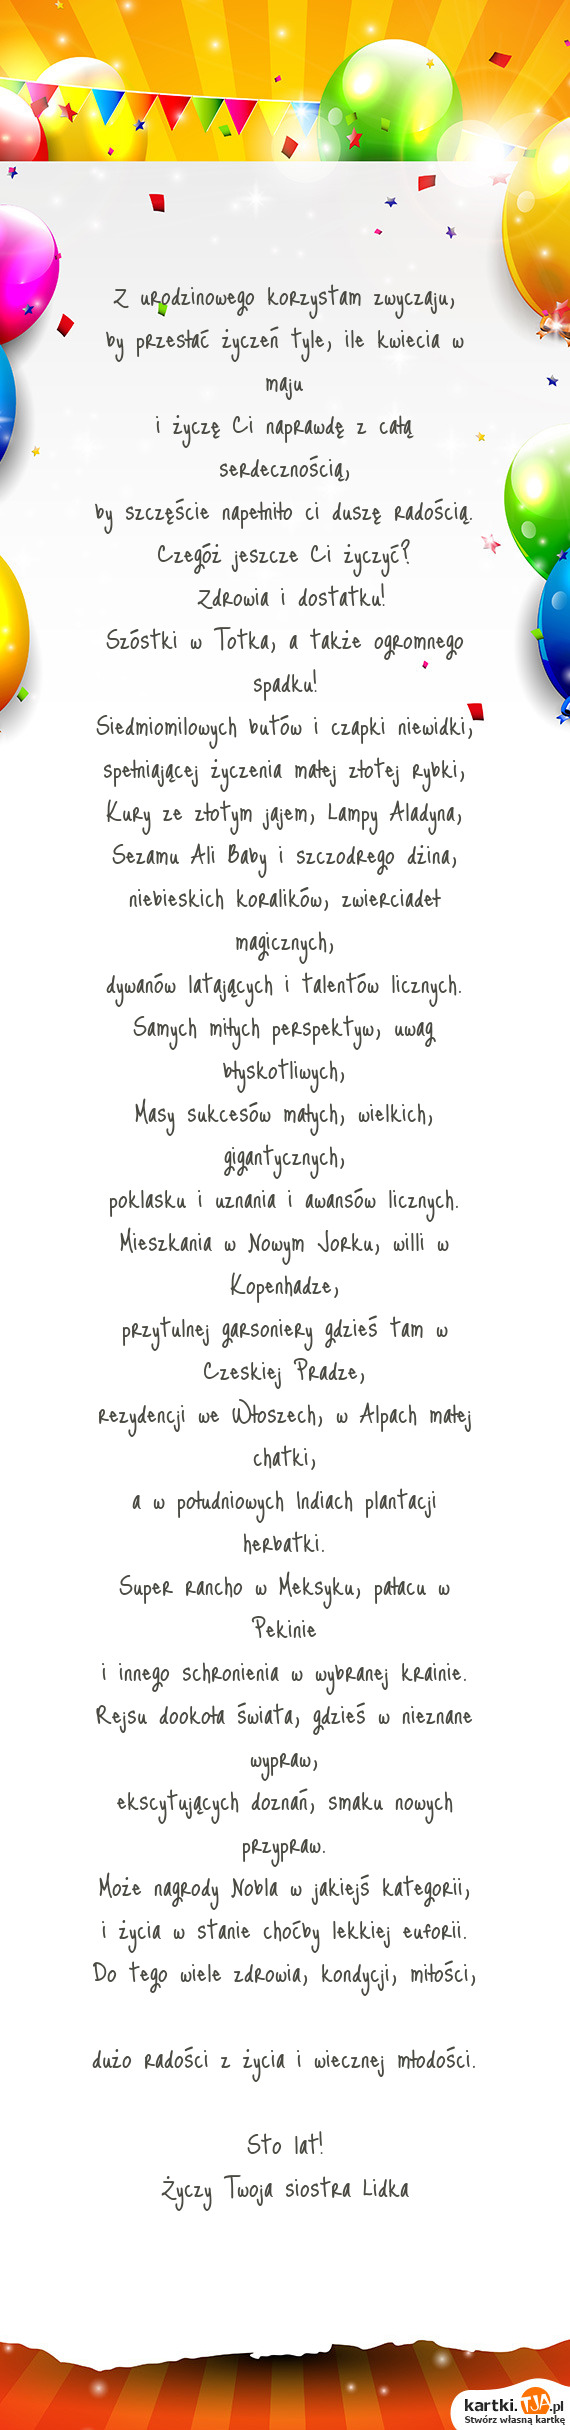 Z urodzinowego korzystam zwyczaju,
by przesłać życzeń tyle, ile kwiecia w
maju
i życzę Ci naprawdę z całą
serdecznością,
by szczęście napełniło ci duszę radością.
Czegóż jeszcze Ci życzyć?
Zdrowia i dostatku!
Szóstki w Totka, a także ogromnego
spadku!
Siedmiomilowych butów i czapki niewidki,
spełniającej życzenia małej złotej rybki,
Kury ze złotym jajem, Lampy Aladyna,
Sezamu Ali Baby i szczodrego dżina,
niebieskich koralików, zwierciadeł
magicznych,
dywanów latających i talentów licznych.
Samych miłych perspektyw, uwag
błyskotliwych,
Masy sukcesów małych, wielkich,
gigantycznych,
poklasku i uznania i awansów licznych.
Mieszkania w Nowym Jorku, willi w
Kopenhadze,
przytulnej garsoniery gdzieś tam w
Czeskiej Pradze,
rezydencji we Włoszech, w Alpach małej
chatki,
a w południowych Indiach plantacji
herbatki.
Super rancho w Meksyku, pałacu w
Pekinie
i innego schronienia w wybranej krainie.
Rejsu dookoła świata, gdzieś w nieznane
wypraw,
ekscytujących doznań, smaku nowych
przypraw.
Może nagrody Nobla w jakiejś kategorii,
i życia w stanie choćby lekkiej euforii.
Do tego wiele zdrowia, kondycji, miłości,
dużo radości z życia i wiecznej młodości.
Sto lat!
Życzy Twoja siostra Lidka
kartki.TJA.pl
Stwórz własną kartkę